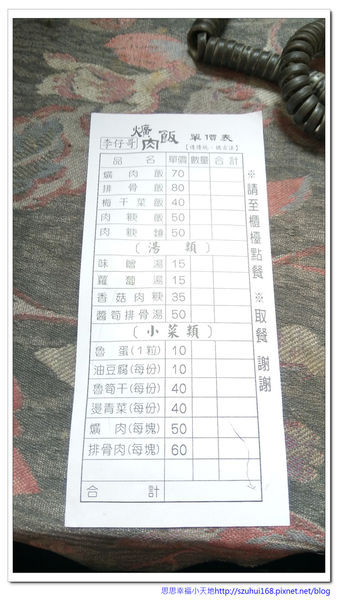 李仔哥 爌肉飯 單價表
【遵傳統、依古法】
品名 單價 數量 合計
爌肉飯 70
排骨飯 80
梅干菜飯 40
肉粳飯 50
肉粳麵 50
(湯類)
味噌湯 15
蘿蔔湯 15
香菇肉粳 35
醬筍排骨湯 50
(小菜類)
魯蛋(1粒) 10
油豆腐(每份) 10
魯筍干(每份) 40
燙青菜(每份) 40
爌肉(每塊) 50
排骨肉(每塊) 60
合計
※請至櫃檯點餐 ※取餐 謝謝
思思幸福小天地http://szuhui168.pixnet.net/blog